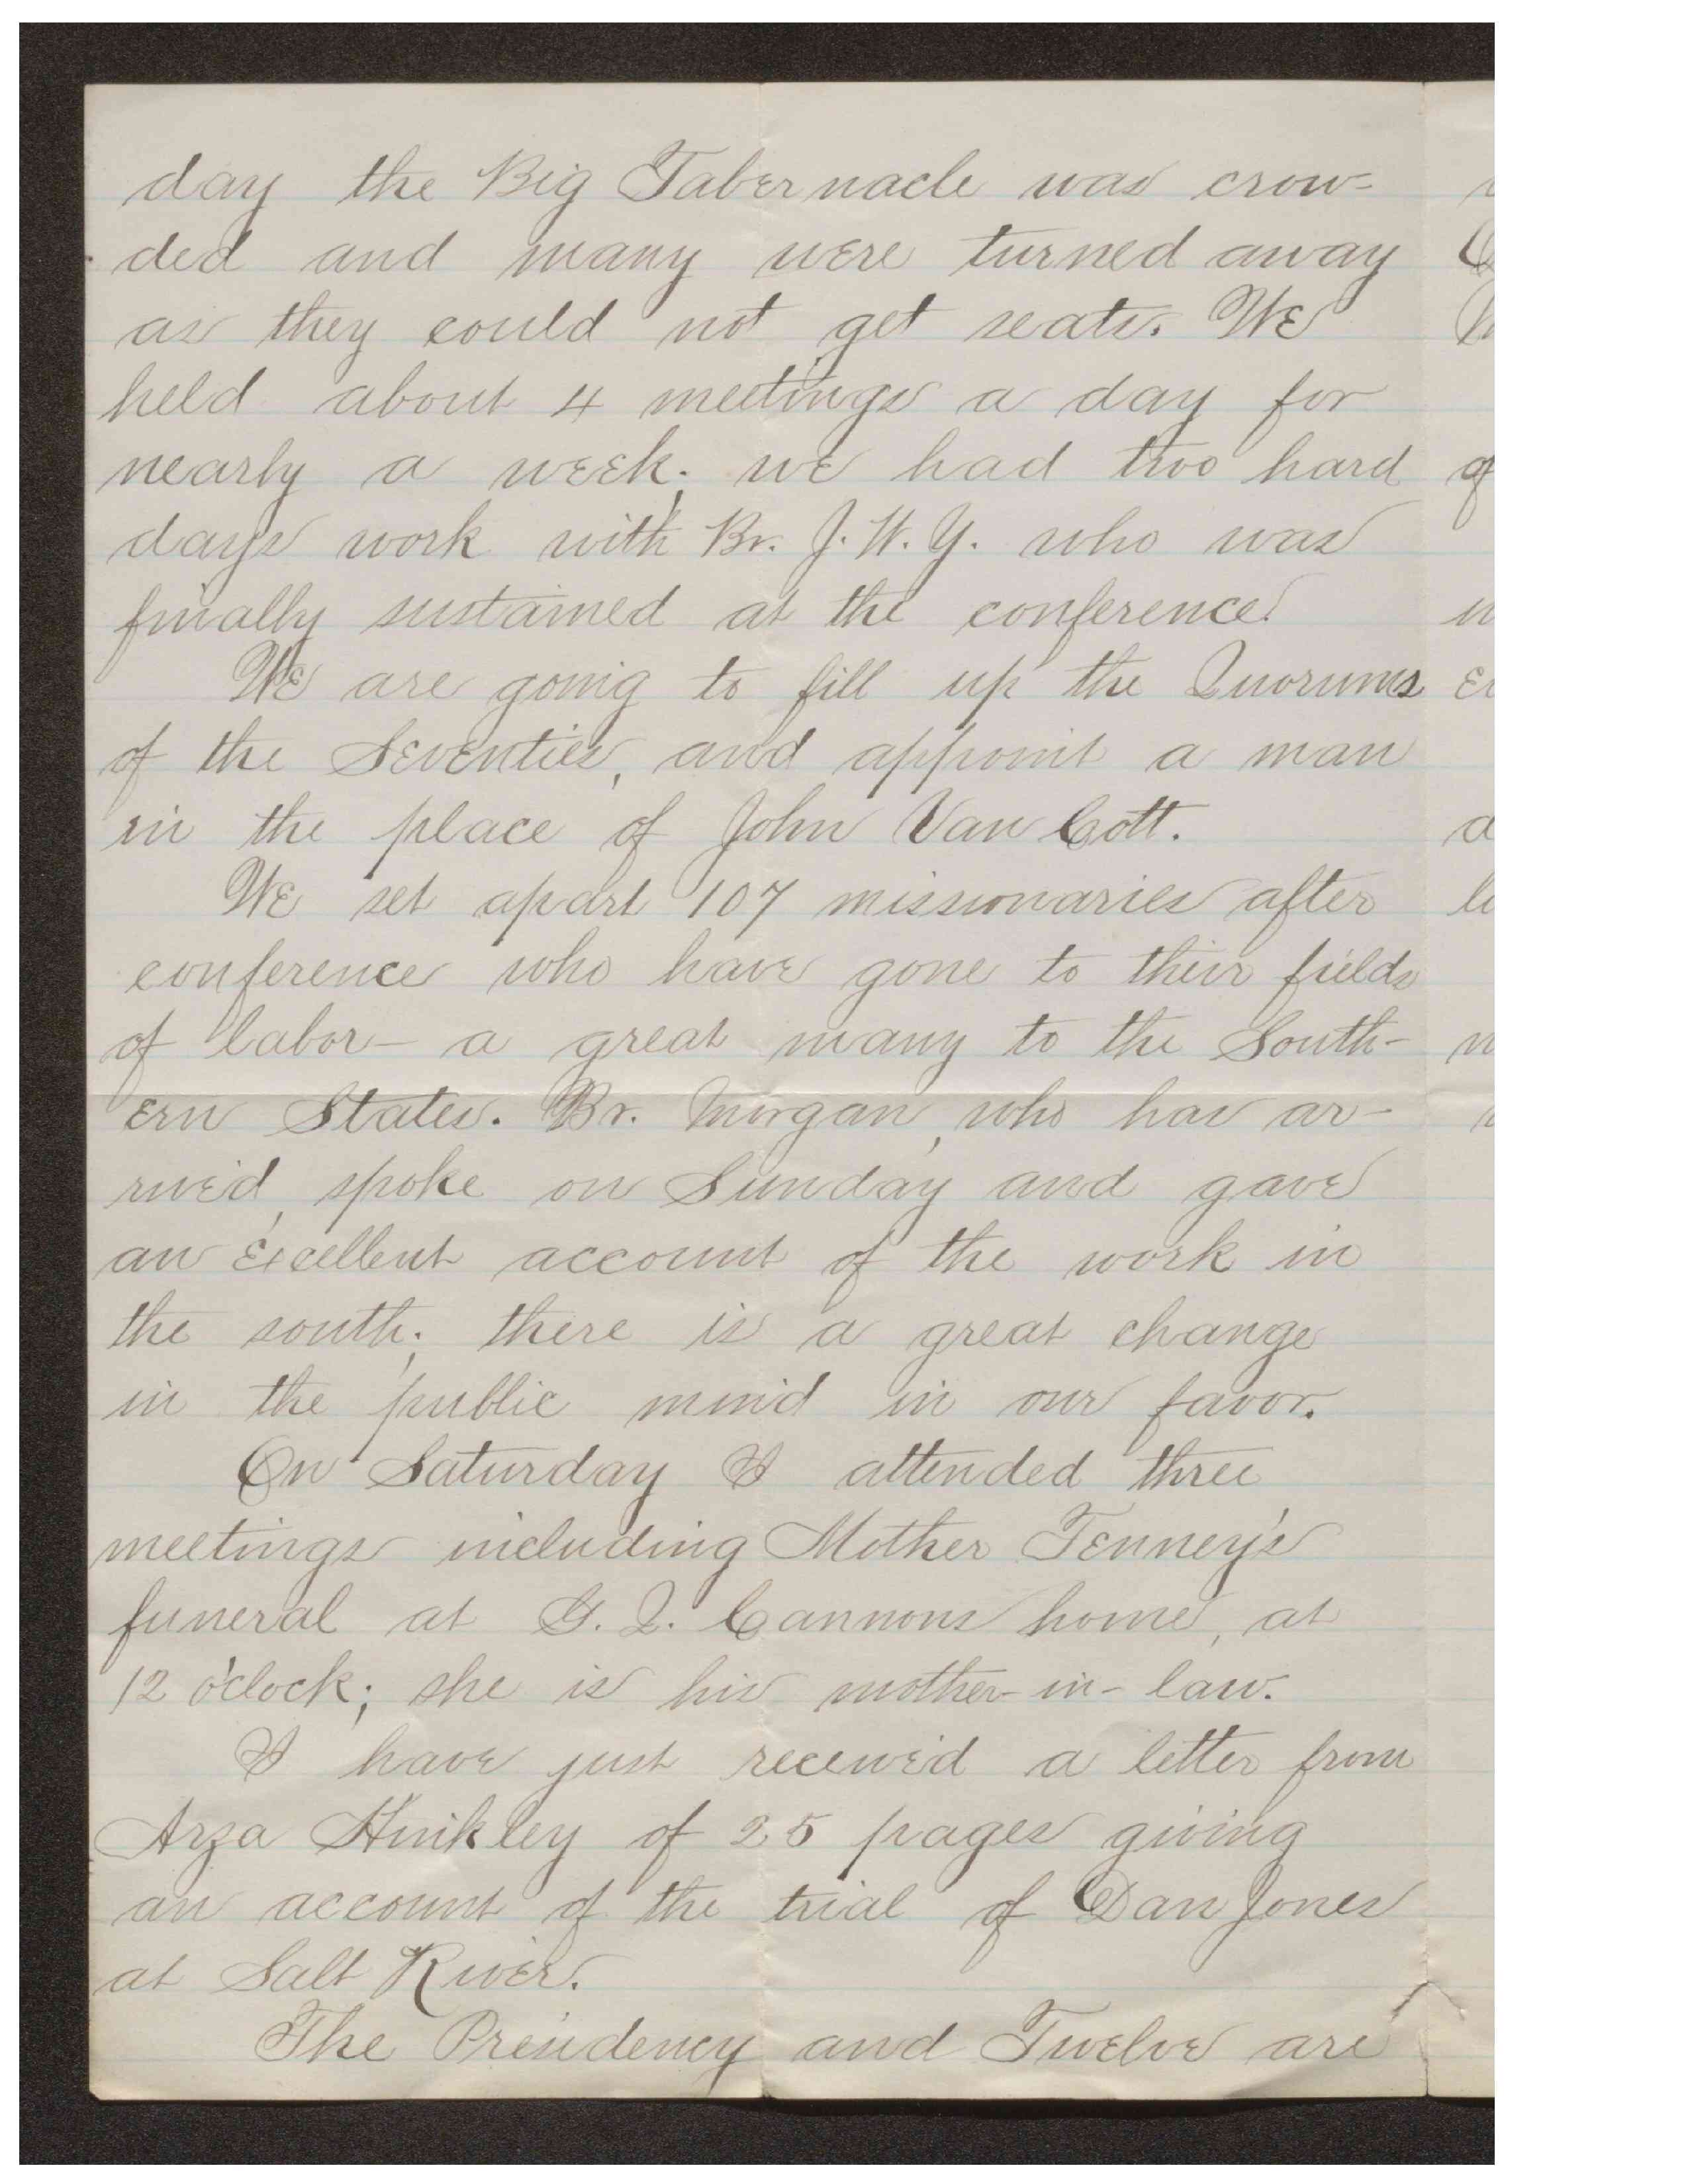 day the Big Tabernacle was crow-
ded and many were turned away
as they could not get seats. We
held about 4 meetings a day for
nearly a week; we had two hard
days work with Br. J. W. Y. who was
finally sustained at the conference.
We are going to fill up the Quorums
of the Seventies, and appoint a man
in the place of John Van Cott.
We set apart 107 missionaries after
conference who have gone to their fields
of labor- a great many to the South-
ern States. Br. Morgan, who has ar-
rived, spoke on Sunday and gave
an excellent account of the work in
the south; there is a great change
in the public mind in our favor.
On Saturday I attended three
meetings including Mother Tenney's
funeral at G. Q. Cannons home, at
12 o'clock; she is his mother-in-law.
I have just received a letter from
Arza Hinkley of 25 pages giving
an account of the trial of Dan Jones
at Salt River.
The Presidency and Twelve are